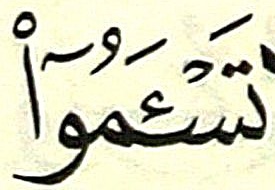 تَسْئَمُوٓاْ